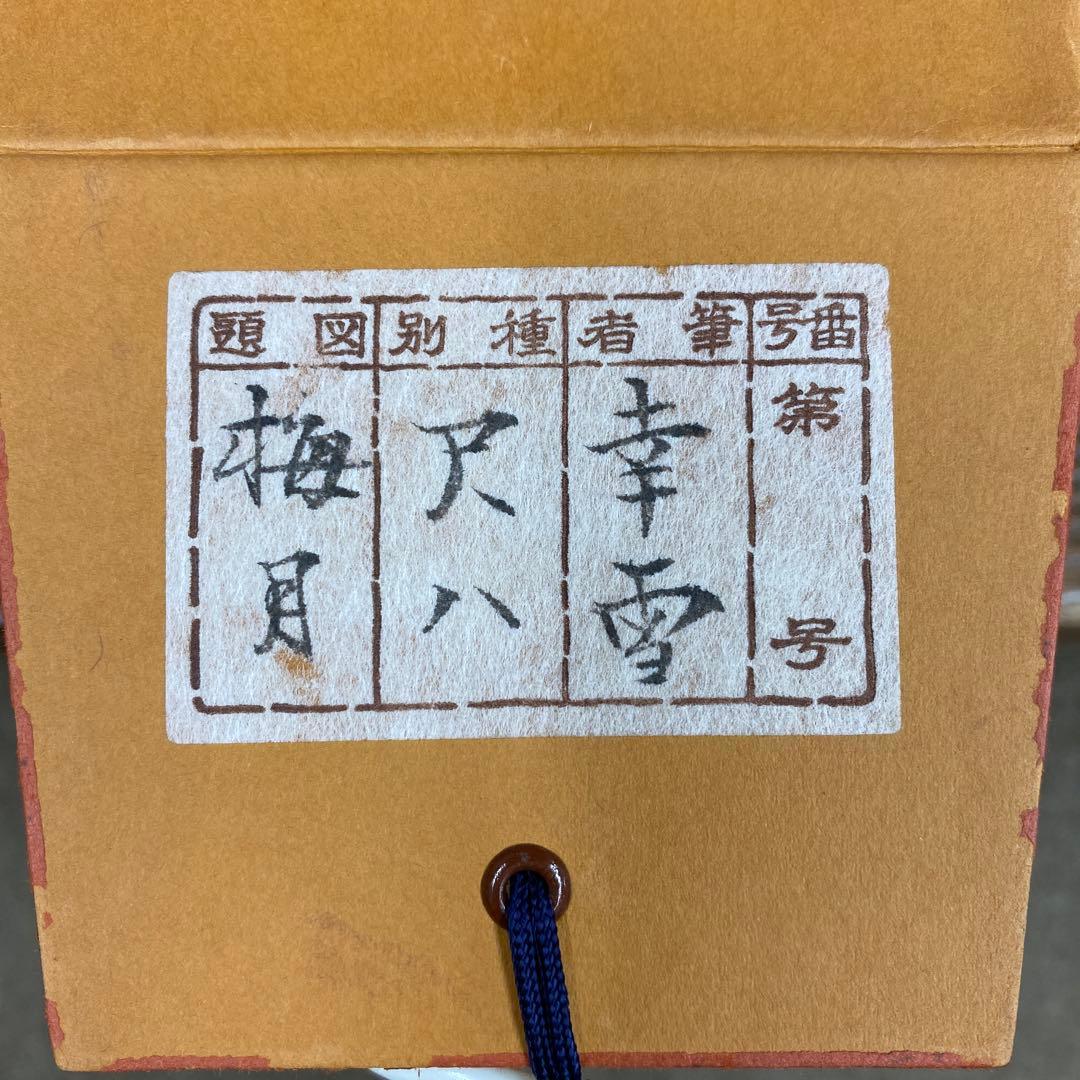 番号
第 号
筆者
幸雪
種別
尺八
図題
梅月